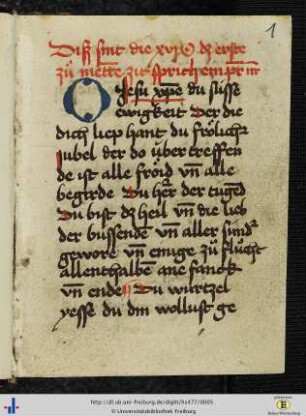 1
Diß sint die xv O dz erste
zů mettē zit sprich ein pr̄ nr̄
O Jesu xp̄e du süsse
ewigkeit Der die
dich liep hant du frölichr
iubel der do über treffen
de ist alle fröid vn̄ alle
begirde Du hēr der tuged
Du bist dz heil vn̄ die lieb
der bussenden vn̄ aller sünd
gewore vn̄ einige zů flůcht
allenthalben ane fanck
vn̄ ende Du wurtzel
yesse du din wollust ge
http://dl.ub.uni-freiburg.de/diglit/hs477/0005
© Universitätsbibliothek Freiburg